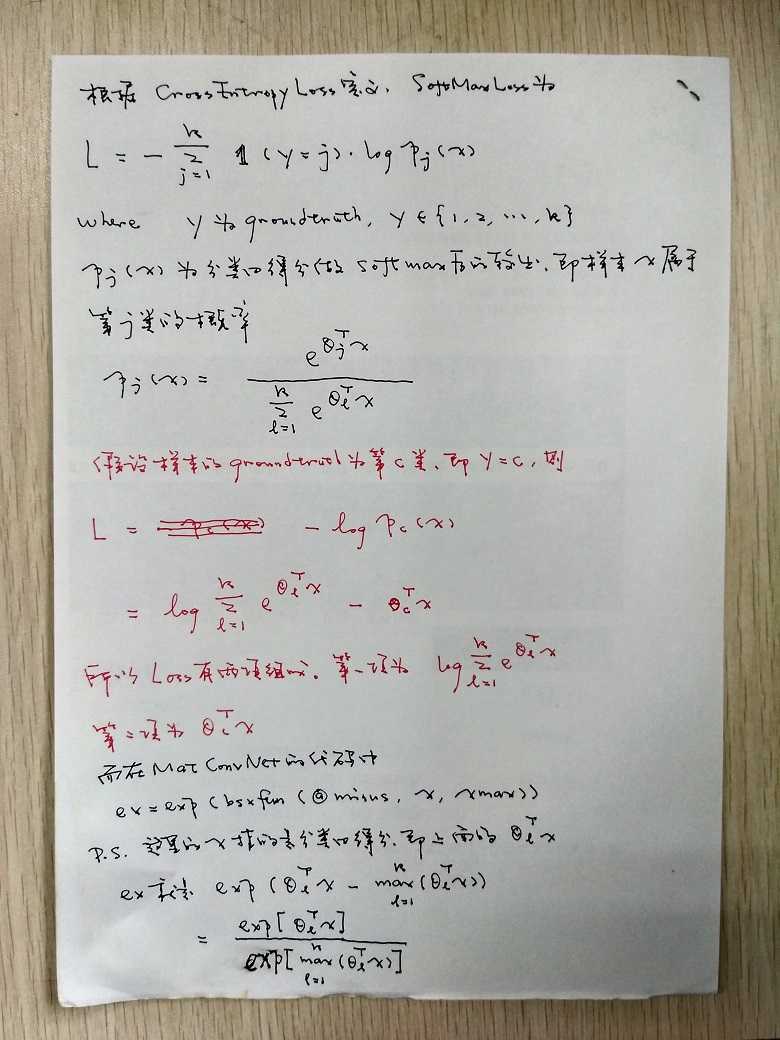 根据 CrossEntropyLoss定义, SoftMaxLoss为
L = - \sum_{j=1}^{k} 1(y=j)·log p_j(x)
where y为groundtruth, y∈{1,2,…,k}
p_j(x) 为分类的得分做softmax后的输出,即样本x属于
第j类的概率
p_j(x) = \frac{e^{θ_j^T x}}{\sum_{l=1}^{k} e^{θ_l^T x}}
假设样本的groundtruth为第c类,即 y=c, 则
L = - log p_c(x)
= log \sum_{l=1}^{k} e^{θ_l^T x} - θ_c^T x
所以 Loss有两项组成, 第一项为 log \sum_{l=1}^{k} e^{θ_l^T x}
第二项为 θ_c^T x
而在MatConvNet的代码中
ex=exp(bsxfun(@minus, x, xmax))
P.S. 这里的x指的是分类的得分,即上面的 θ_l^T x
ex表示 exp(θ_l^T x - \max_{l=1}^{k}(θ_l^T x))
= \frac{exp[θ_l^T x]}{exp[\max_{l=1}^{k}(θ_l^T x)]}